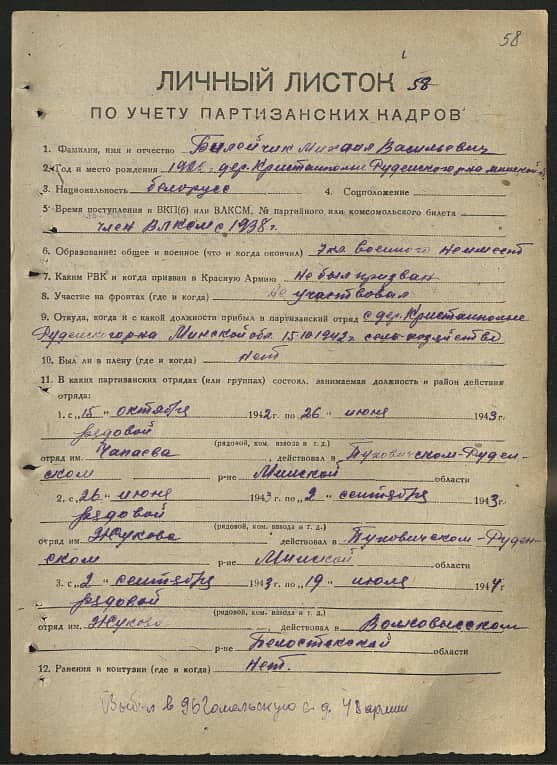 58
ЛИЧНЫЙ ЛИСТОК 58
ПО УЧЕТУ ПАРТИЗАНСКИХ КАДРОВ
1. Фамилия, имя и отчество Билойчик Михаил Васильевич
2. Год и место рождения 1922 г. дер. Кристамполье Руденского р-на минской
3. Национальность белорусс 4. Соцположение
5 Время поступления в ВКП(б) или ВЛКСМ, № партийного или комсомольского билета
член ВЛКСМ с 1938 г.
6. Образование: общее и военное (что и когда окончил) 7 кл военного не имеет
7. Каким РВК и когда призван в Красную Армию Не был призван
8. Участие на фронтах (где и когда) Не участвовал
9. Откуда, когда и с какой должности прибыл в партизанский отряд с дер. Кристамполье
Руденского р-на Минской обл. 15.10.1942 г. сельхозяйство
10. Был ли в плену (где и когда) Нет
11. В каких партизанских отрядах (или группах) состоял, занимаемая должность и район действия
отряда:
1. с „15" октября 1942 г. по „26" июня 1943 г.
рядовой
(рядовой, ком. взвода и т. д.)
отряд им. Чапаева, действовал в Пуховичском-Руден-
ском р-не Минской области
2. с „26" июня 1943 г. по „2" сентября 1943 г.
рядовой
(рядовой, ком. взвода и т. д.)
отряд им. Жукова действовал в Пуховичском-Руден-
ском р-не Минской области
3. с „2" сентября 1943 г. по „19" июля 1944 г.
рядовой
(рядовой, ком. взвода и т. д.)
отряд им. Жукова, действовал в Волковысском
р-не Белостокской области
12. Ранения и контузии (где и когда) Нет.
Выбыл в 96 Гомельскую с. д. 48 армии